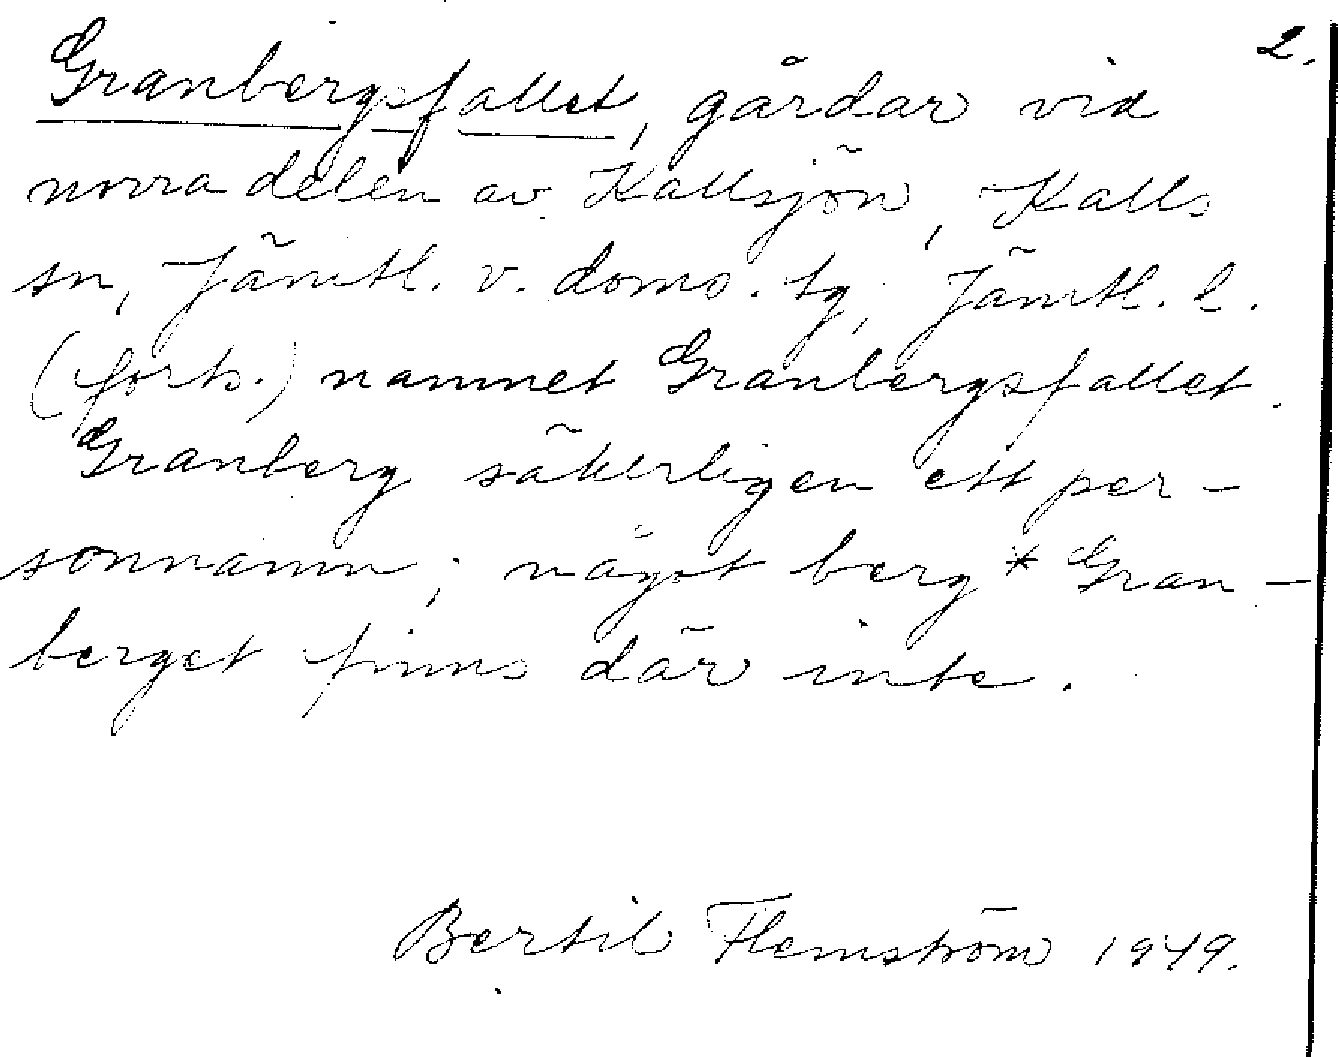 2.
Granbergsfallet, gårdar vid
norra delen av Kallsjön, Kalls
sn, Jämtl. v. doms. tg, Jämtl. l.
(forts.) namnet Granbergsfallet.
Granberg säkerligen ett per-
sonnamn; något berg * Gran-
berget finns där inte.
Bertil Flemström 1949.